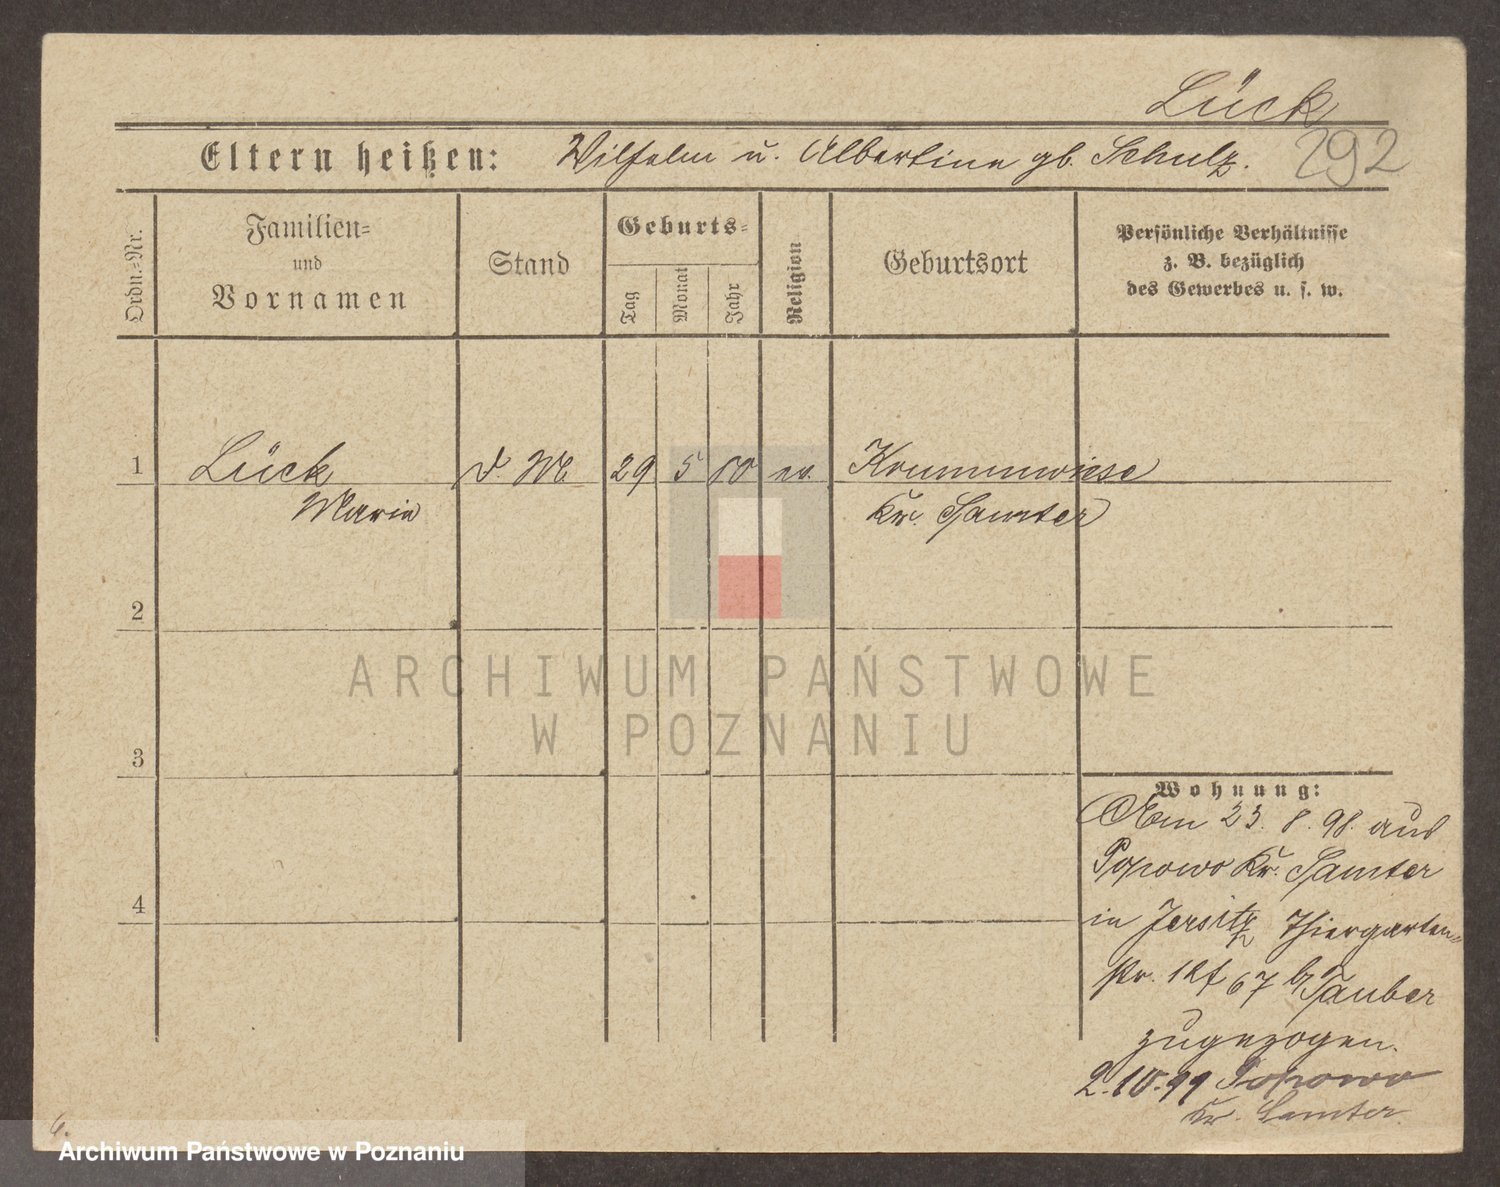 Lück
292
Eltern heißen: Wilhelm u. Albertine gb. Schulz.
Ordn.-Nr.
Familien-
und
Vornamen
Stand
Geburts-
Tag
Monat
Jahr
Religion
Geburtsort
Persönliche Verhältnisse
z. B. bezüglich
des Gewerbes u. s. w.
1 Lück d. M. 29 5 ev. Krummwiese
Marie Kr. Samter
2
ARCHIWUM PAŃSTWOWE
W POZNANIU
3
Wohnung:
Am 23. 8. 98. aus
Popowo Kr. Samter
4
in Jersitz Thiergarten-
str. 67 b/ Tauber
zugezogen.
2.10.99 Popowo
Kr. Samter.
6.
Archiwum Państwowe w Poznaniu